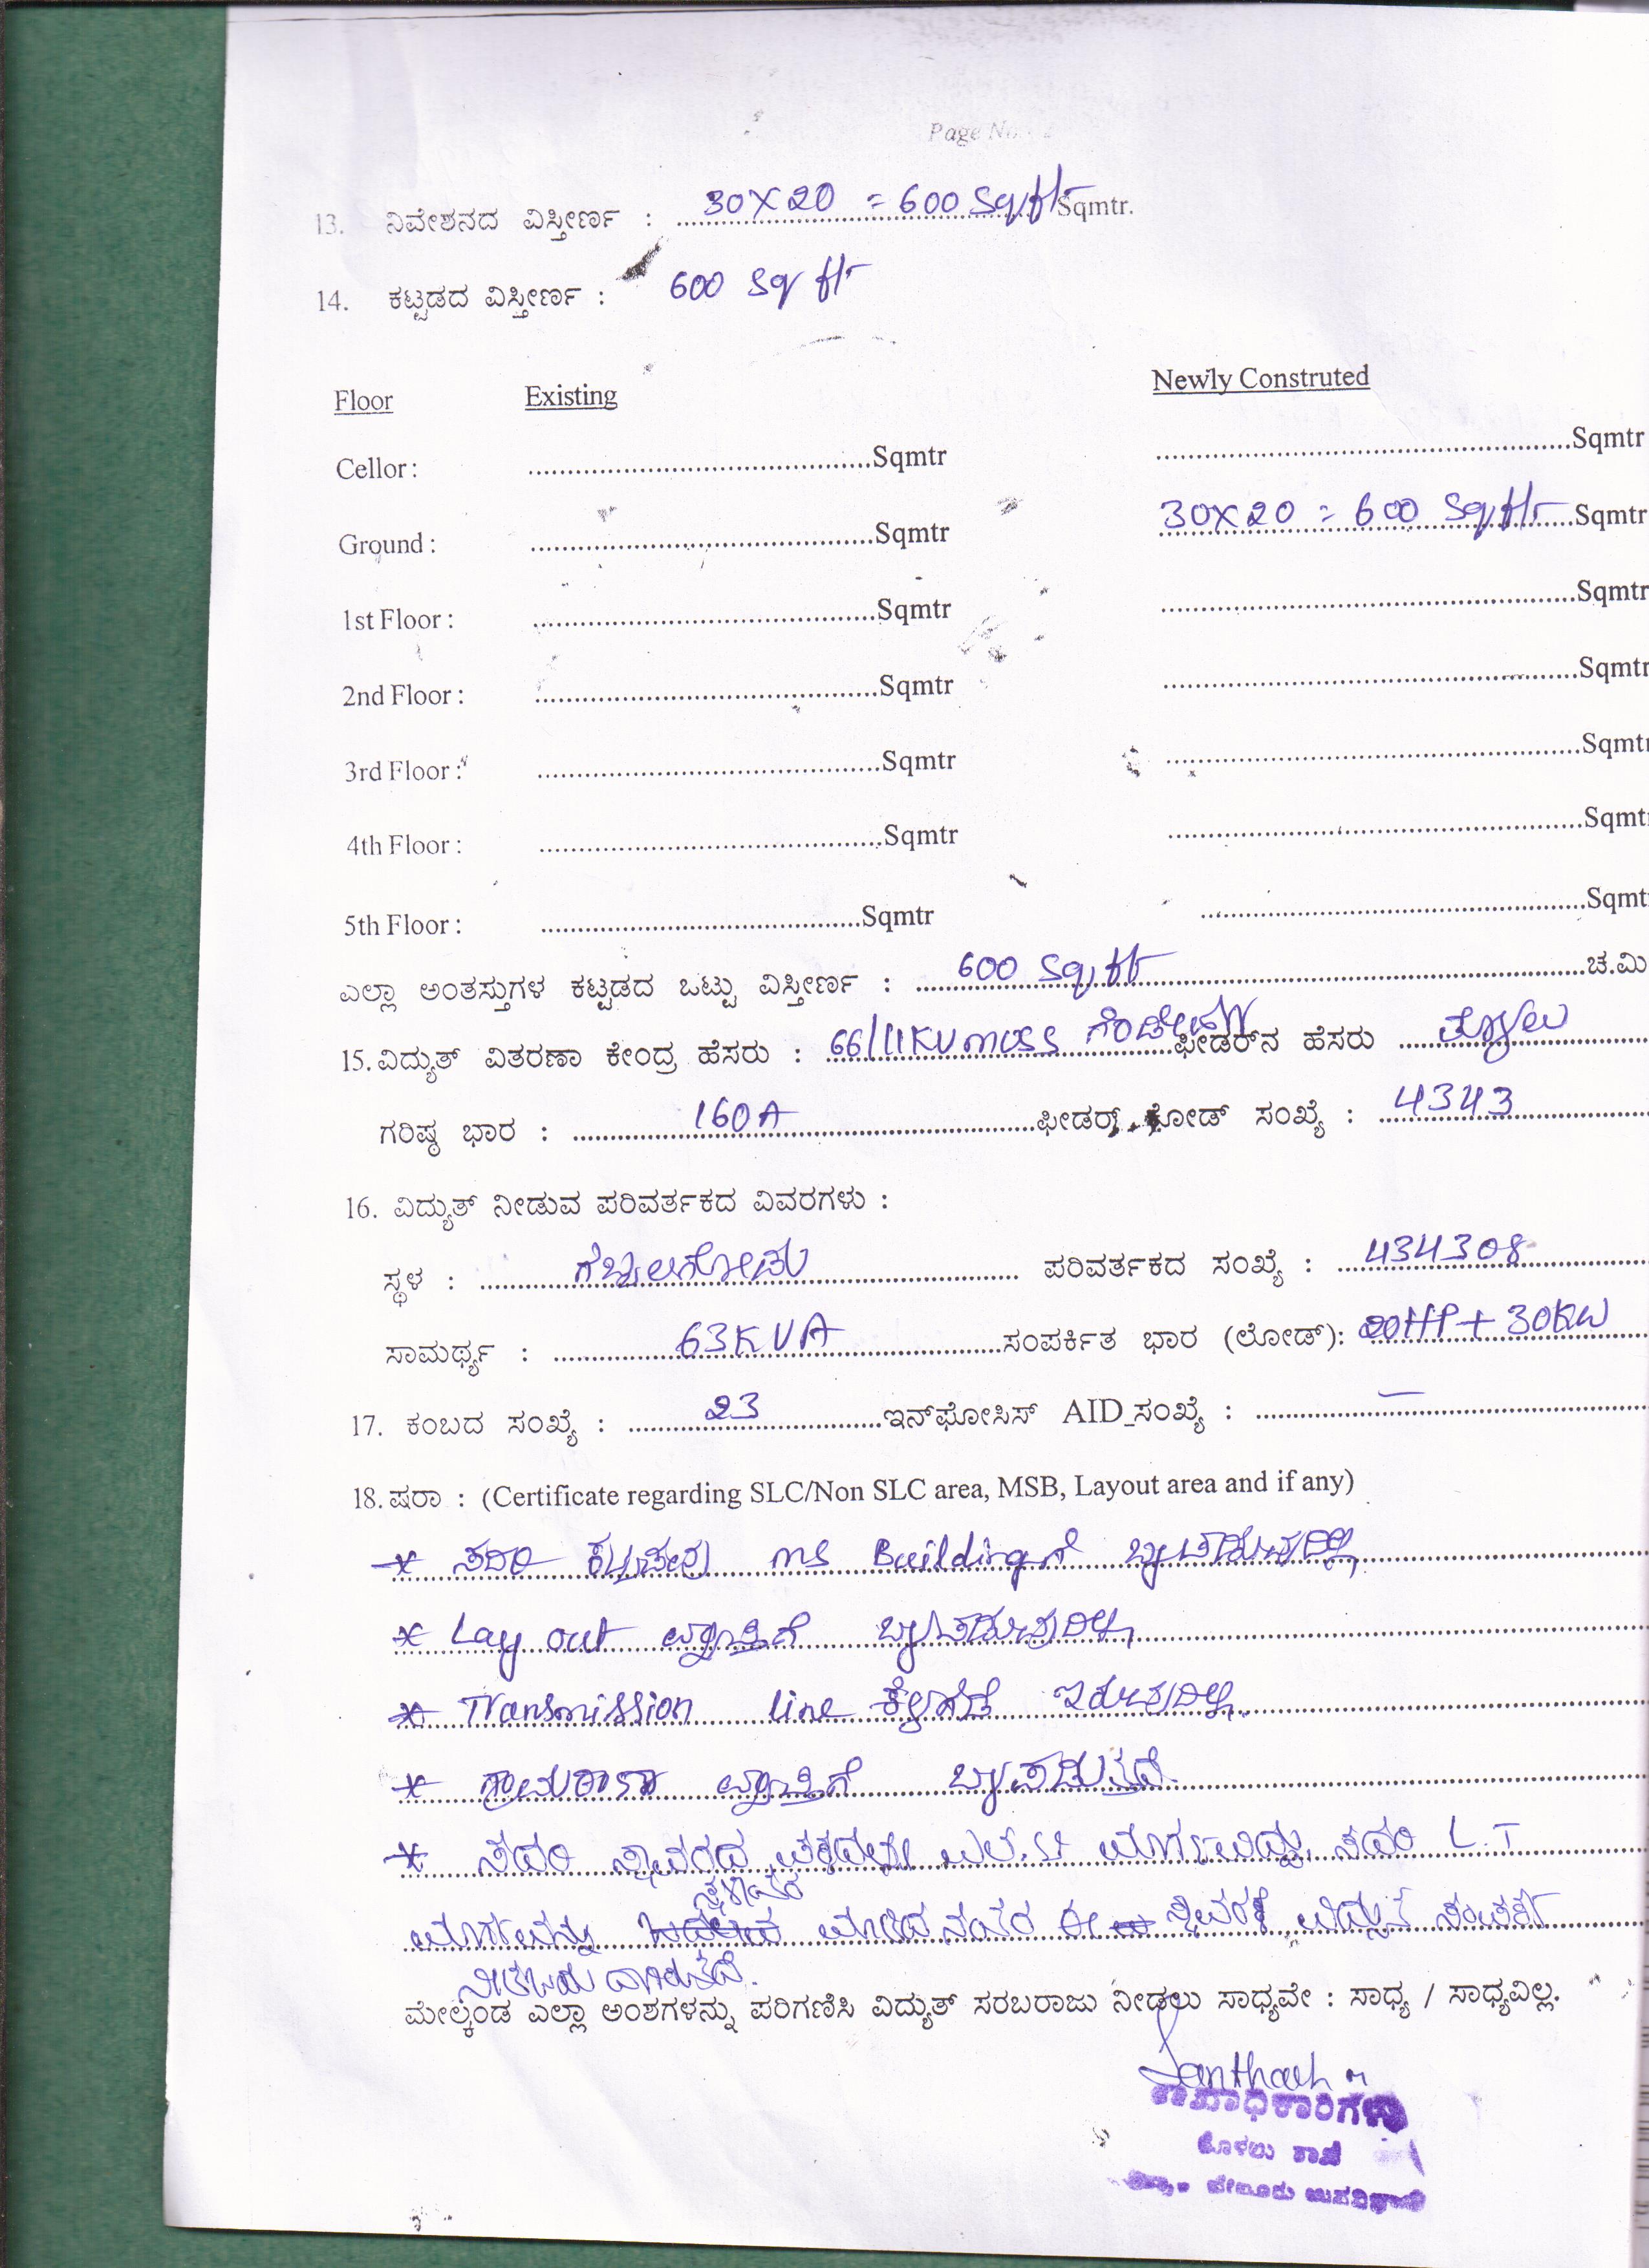 Page No. 2
13. ನಿವೇಶನದ ವಿಸ್ತೀರ್ಣ : 30X20 = 600 Sqft Sqmtr.
14. ಕಟ್ಟಡದ ವಿಸ್ತೀರ್ಣ : 600 Sq ft
Floor Existing Newly Construted
Cellor : ........Sqmtr ........Sqmtr
Ground : ........Sqmtr 30X20 = 600 Sqft Sqmtr
1st Floor : ........Sqmtr ........Sqmtr
2nd Floor : ........Sqmtr ........Sqmtr
3rd Floor : ........Sqmtr ........Sqmtr
4th Floor : ........Sqmtr ........Sqmtr
5th Floor : ........Sqmtr ........Sqmt
ಎಲ್ಲಾ ಅಂತಸ್ತುಗಳ ಕಟ್ಟಡದ ಒಟ್ಟು ವಿಸ್ತೀರ್ಣ : 600 Sqft ಚ.ಮಿ
15. ವಿದ್ಯುತ್ ವಿತರಣಾ ಕೇಂದ್ರ ಹೆಸರು : 66/11KV muss ಫೀಡರ್‌ನ ಹೆಸರು
ಗರಿಷ್ಠ ಭಾರ : 160A ಫೀಡರ್ ಕೋಡ್ ಸಂಖ್ಯೆ : 4343
16. ವಿದ್ಯುತ್ ನೀಡುವ ಪರಿವರ್ತಕದ ವಿವರಗಳು :
ಸ್ಥಳ : ಪರಿವರ್ತಕದ ಸಂಖ್ಯೆ : 434308
ಸಾಮರ್ಥ್ಯ : 63KVA ಸಂಪರ್ಕಿತ ಭಾರ (ಲೋಡ್): 20HP + 30KW
17. ಕಂಬದ ಸಂಖ್ಯೆ : 23 ಇನ್‌ಫೋಸಿಸ್ AID_ಸಂಖ್ಯೆ : —
18. ಷರಾ : (Certificate regarding SLC/Non SLC area, MSB, Layout area and if any)
* ಸದರಿ ಕಟ್ಟಡವು ms Buildingಗೆ ಒಳಪಡುವುದಿಲ್ಲ
* Lay out ವ್ಯಾಪ್ತಿಗೆ ಒಳಪಡುವುದಿಲ್ಲ
* Transmission line ಕೆಳಗಡೆ ಇರುವುದಿಲ್ಲ.
* ವ್ಯಾಪ್ತಿಗೆ ಒಳಪಡುತ್ತದೆ.
* ಸದರಿ ಸ್ಥಾವರದ ಎಲ್.ಟಿ ಮಾರ್ಗವಿದ್ದು, ಸದರಿ L.T
ಸ್ಥಳಾಂತರ
ಮಾರ್ಗವನ್ನು ಮಾಡಿದ ನಂತರ ಈ ಸ್ಥಾವರಕ್ಕೆ ವಿದ್ಯುತ್ ಸಂಪರ್ಕ
ಮೇಲ್ಕಂಡ ಎಲ್ಲಾ ಅಂಶಗಳನ್ನು ಪರಿಗಣಿಸಿ ವಿದ್ಯುತ್ ಸರಬರಾಜು ನೀಡಲು ಸಾಧ್ಯವೇ : ಸಾಧ್ಯ / ಸಾಧ್ಯವಿಲ್ಲ.
ಶಾಖಾಧಿಕಾರಿಗಳು